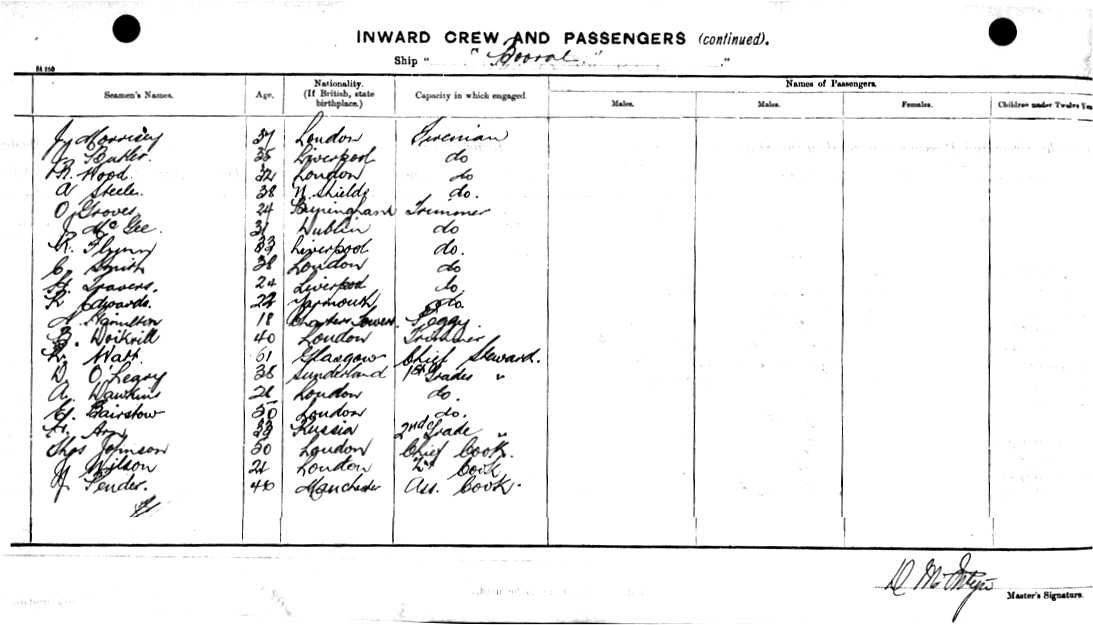 INWARD CREW AND PASSENGERS (continued).
Ship “ "Booral" ”
Seamen's Names. Age. Nationality. (If British, state birthplace.) Capacity in which engaged. Names of Passengers.
Males. Males. Females. Children under Twelve Yea
J Morrisey 37 London Fireman
J Butler. 35 Liverpool do
R. Wood 32 London do
A Steele. 38 N. Shields do.
O. Grover 24 Birmingham Trimmer
J McGee. 31 Dublin do
R. Flynn 33 Liverpool do.
C. Smith 38 London do
H. Travers. 24 Liverpool do
R Edwards. 22 Yarmouth do
A Hamilton 18 Charters Towers. Peggy.
B. 40 London Trimmer
R. Watt. 61 Glasgow Chief Steward.
D O'Leary 38 Sunderland 1st Grades "
A. Dawkins 26 London do.
G. Bairstow 50 London do.
33 Russia 2nd Grade "
Thos Johnson 50 London Chief Cook.
J Wilson 21 London 2" Cook
J Pender. 40 Manchester Ass. Cook.
D McIntyre
Master's Signature.